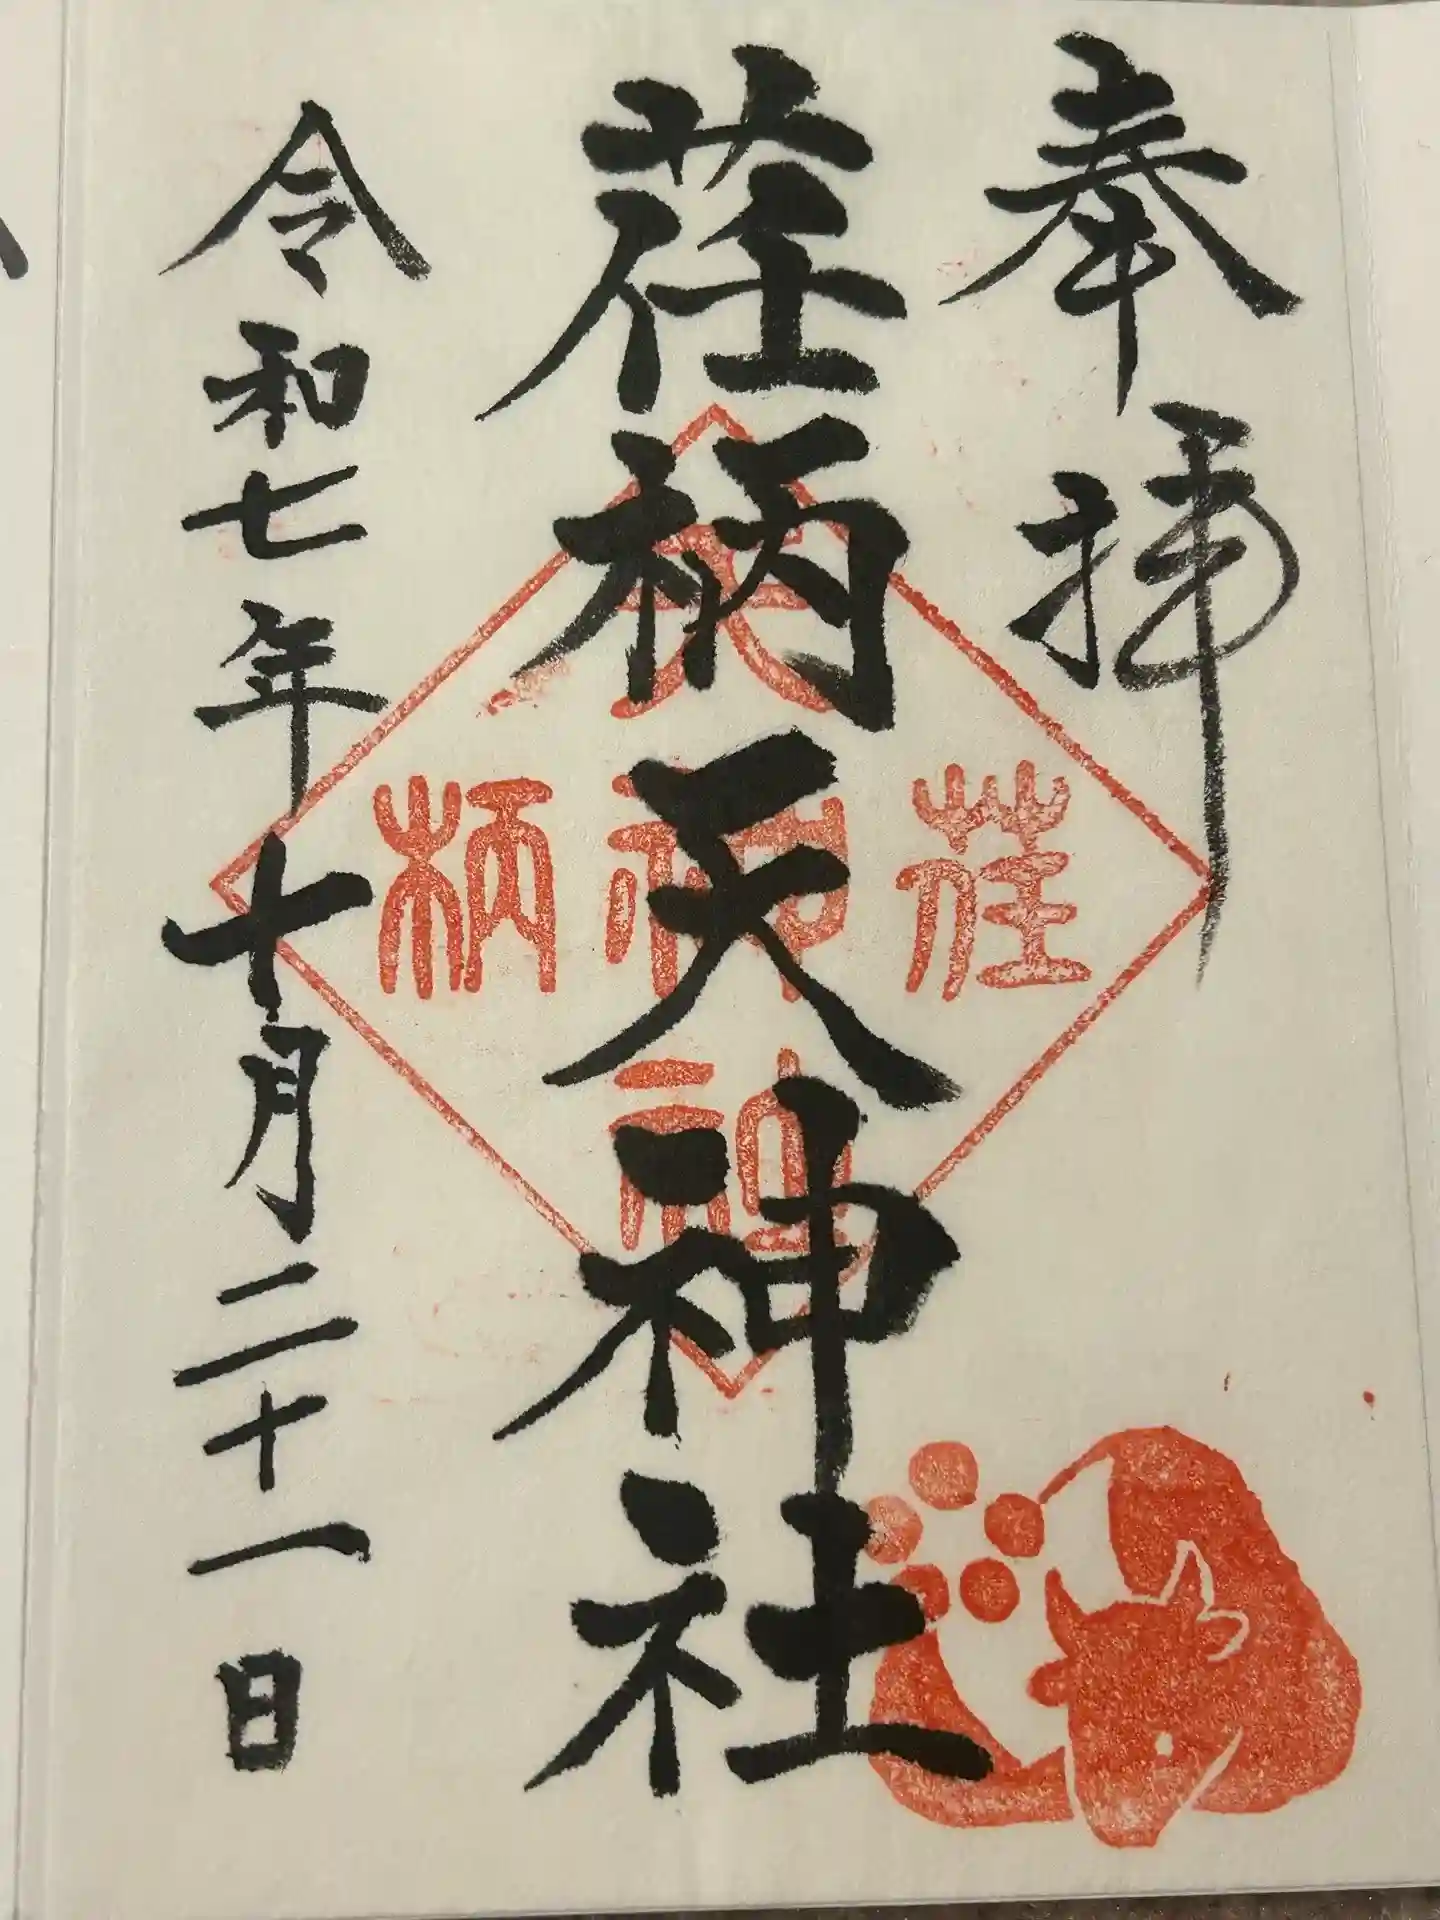 奉拝
荏柄天神社
令和七年十月二十一日
天
荏神柄
社